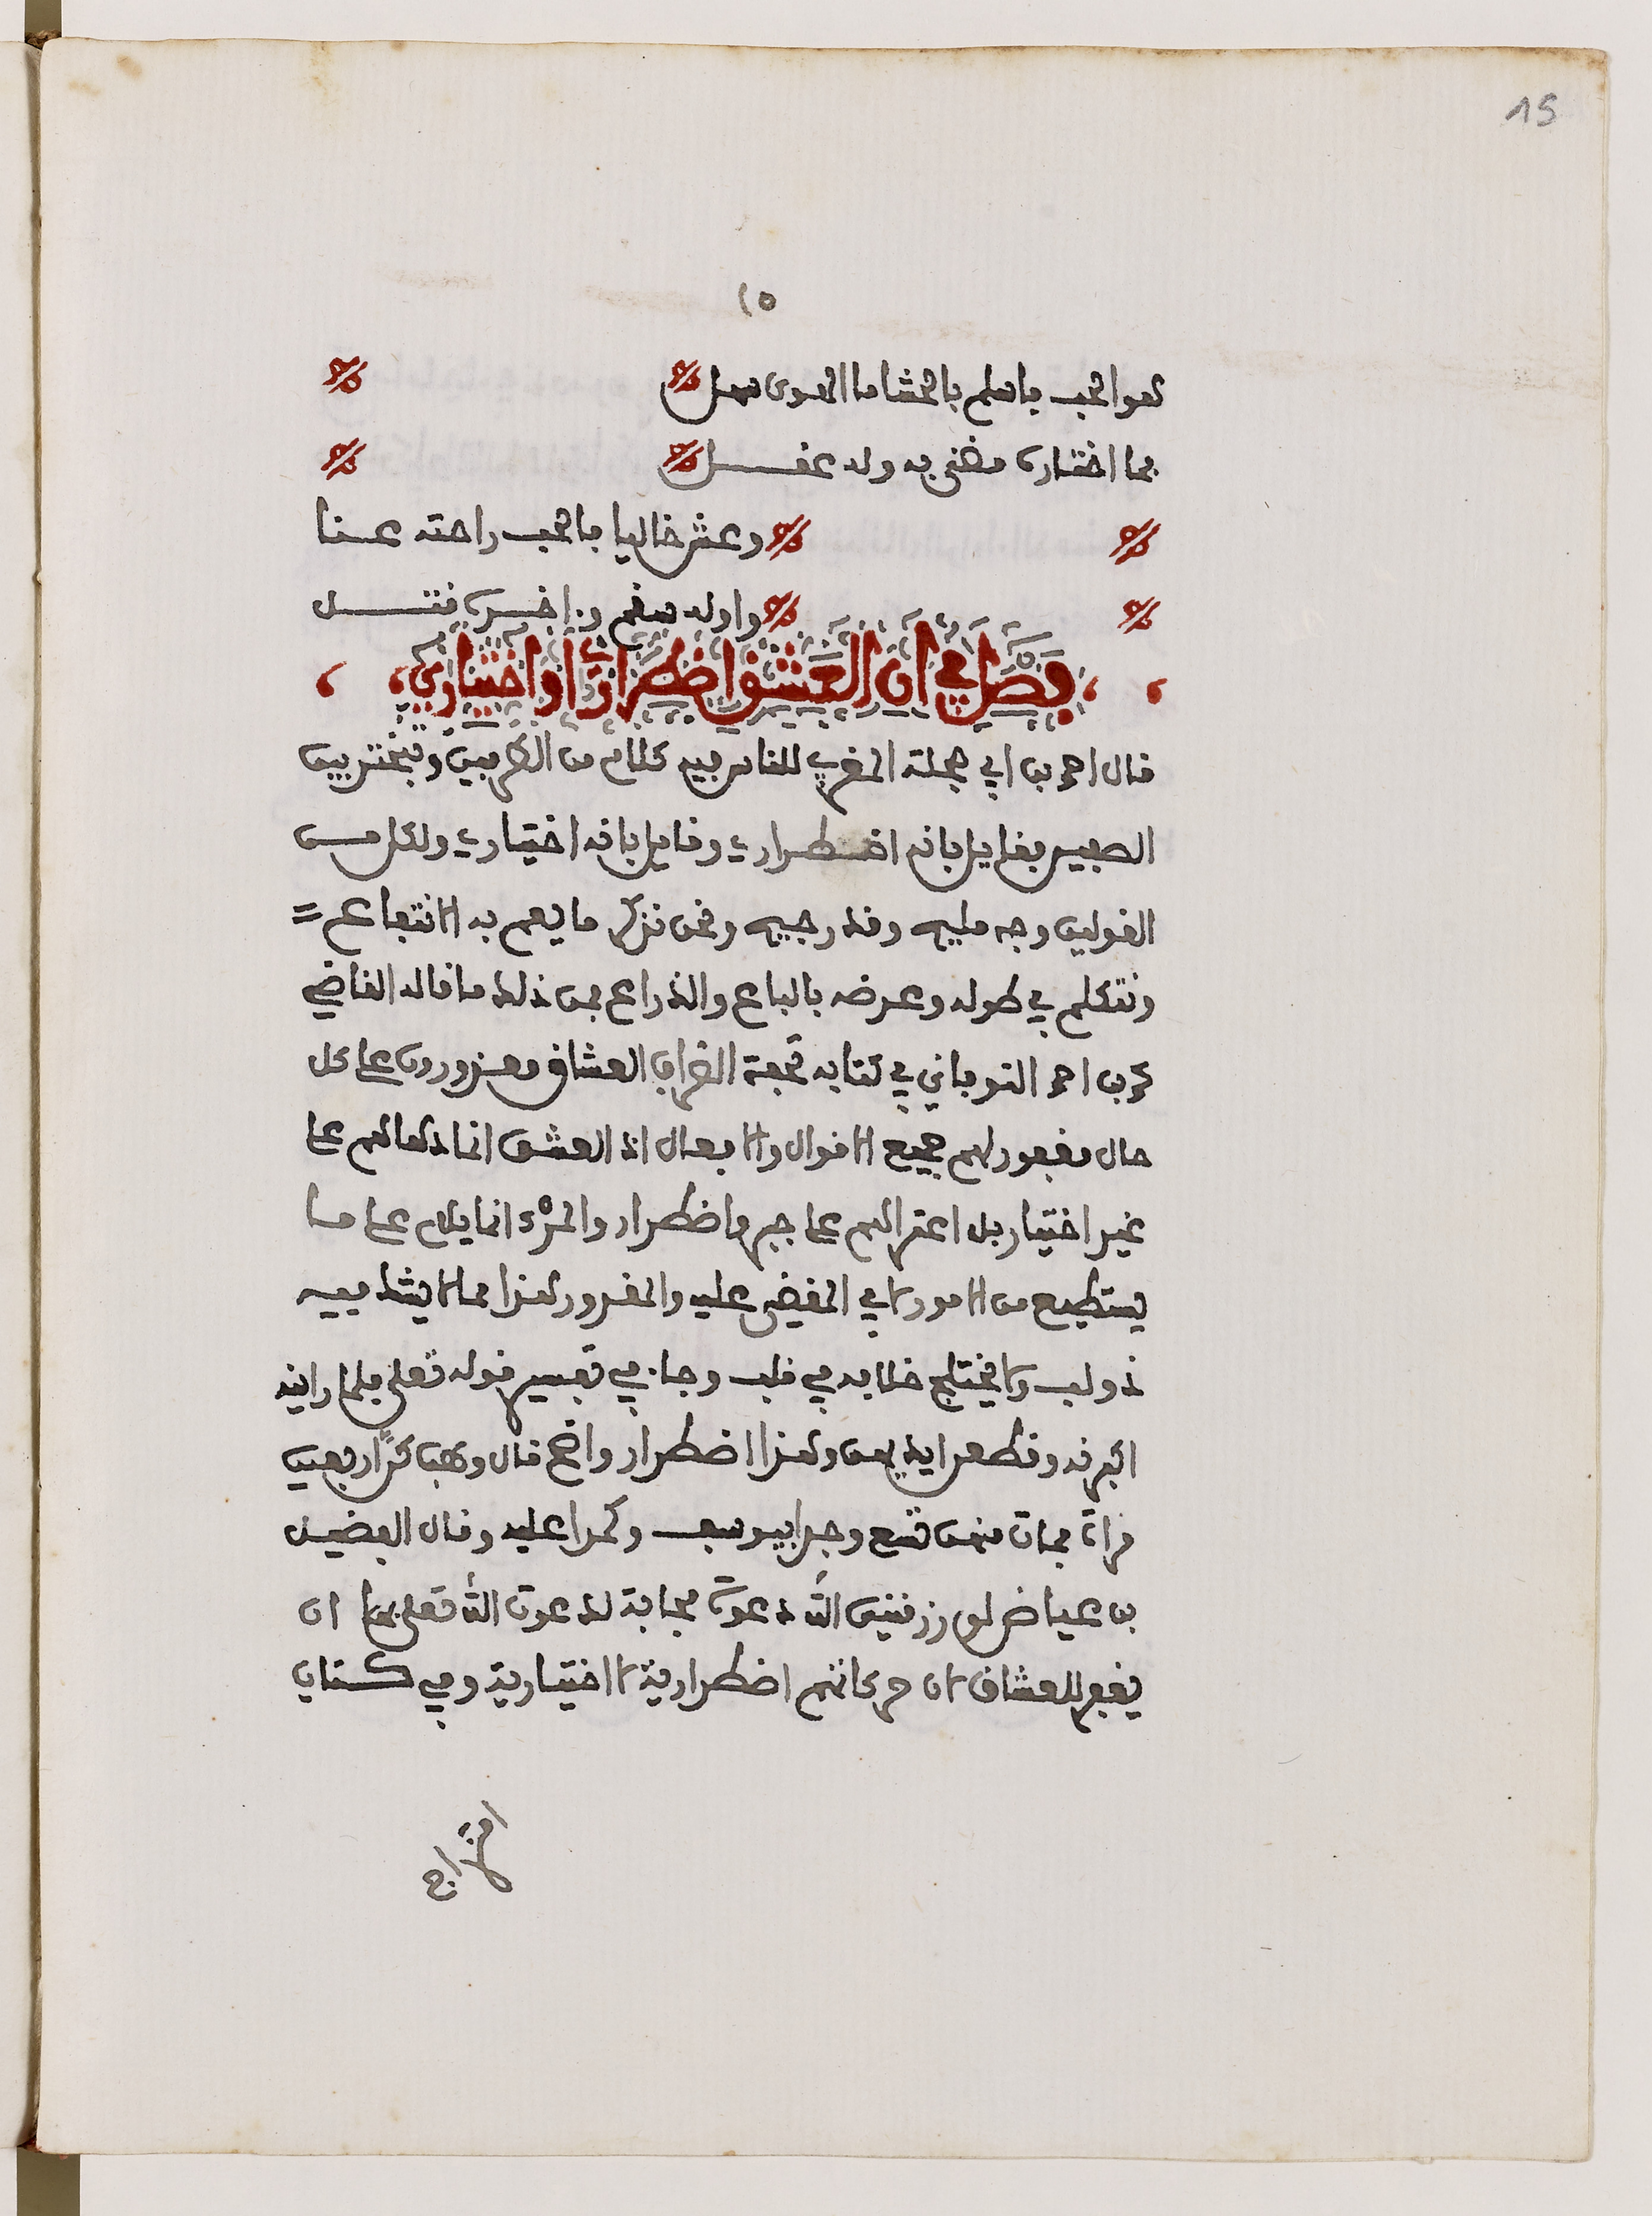 15
١٥
هو الحب فاسلم بالحشا ما الهوى سهل
فما اختاره مضنى به وله عقل
وعش خاليا فالحب راحته عنا
واوله سقم وءاخره قتل
فصل في ان العشق اضطراري او اختياري
قال احمد بن ابي حجلة المغربي للناس فيه كلام من الطرفين وتبختر بين
الصفين فقايل بانه اضطراري وقايل بانه اختياري ولكل من
القولين وجه مليح وقد رجيح ونحن نذكر ما يعم به الانتفاع
ونتكلم في طوله وعرضه بالباع والذراع فمن ذلك ما قاله القاضي
محمد بن احمد النوقاني في كتابه تحفة الظراف العشاق معذورون على كل
حال مغفور لهم جميع الاقوال والافعال اذ العشق انما دهاهم على
غير اختيار بل اعتراهم على جبر واضطرار والمرء انما يلام على ما
يستطيع من الامور لا في المقضي عليه والمقدور هذا مما لا يشك فيه
ذو لب ولا يختلج خلافه في قلب وجاء في تفسير قوله تعلى فلما راينه
اكبرنه وقطعن ايديهن وهذا اضطرار واضح قال وهب كن اربعين
امراة فمات منهن تسع وجدا بيوسف وكمدا عليه وقال الفضيل
بن عياض لو رزقني الله دعوة مجابة لدعوت الله تعلى بها ان
يغفر للعشاق لان حركاتهم اضطرارية لا اختيارية وفي كتاب
امتزاج